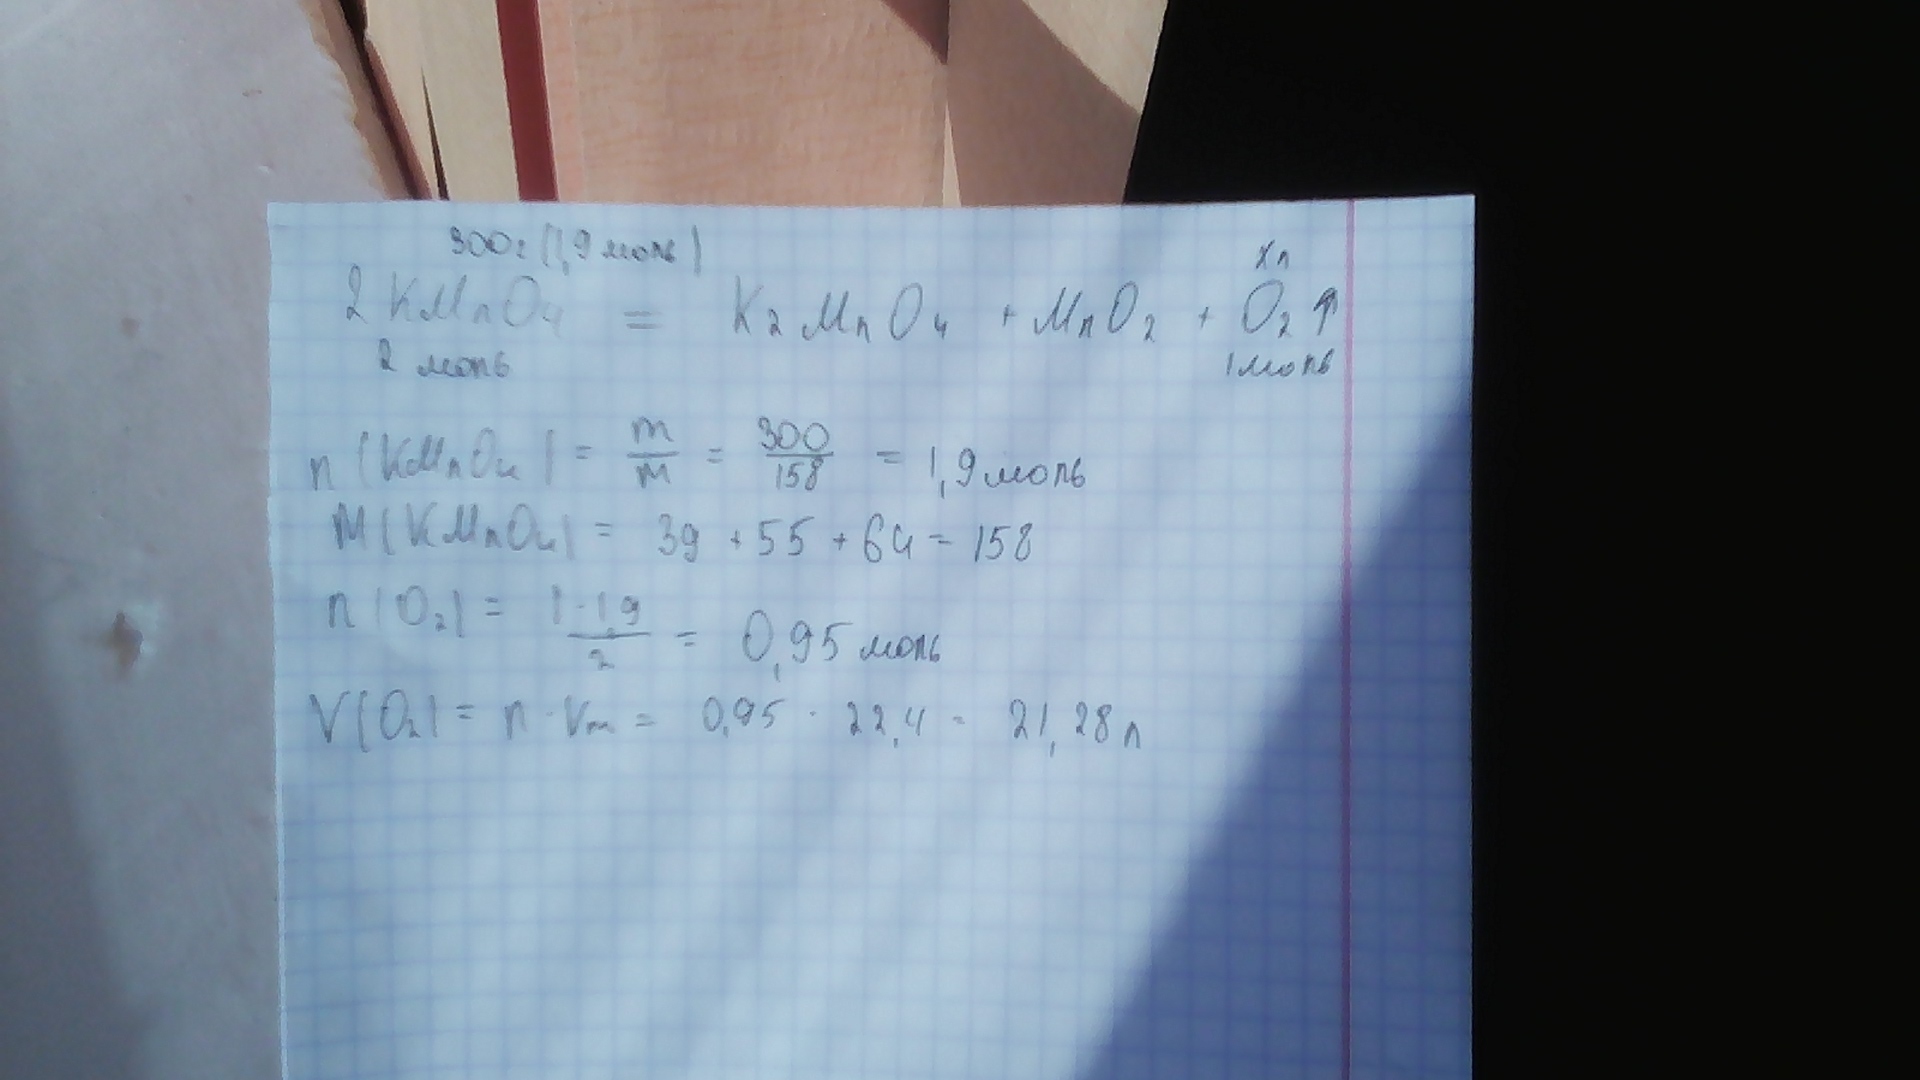 300г (1,9 моль) xл
2KMnO4 = K2MnO4 + MnO2 + O2↑
2 моль 1 моль
n(KMnO4) = m/M = 300/158 = 1,9 моль
M(KMnO4) = 39 + 55 + 64 = 158
n(O2) = 1·1,9/2 = 0,95 моль
V(O2) = n · Vm = 0,95 · 22,4 = 21,28 л